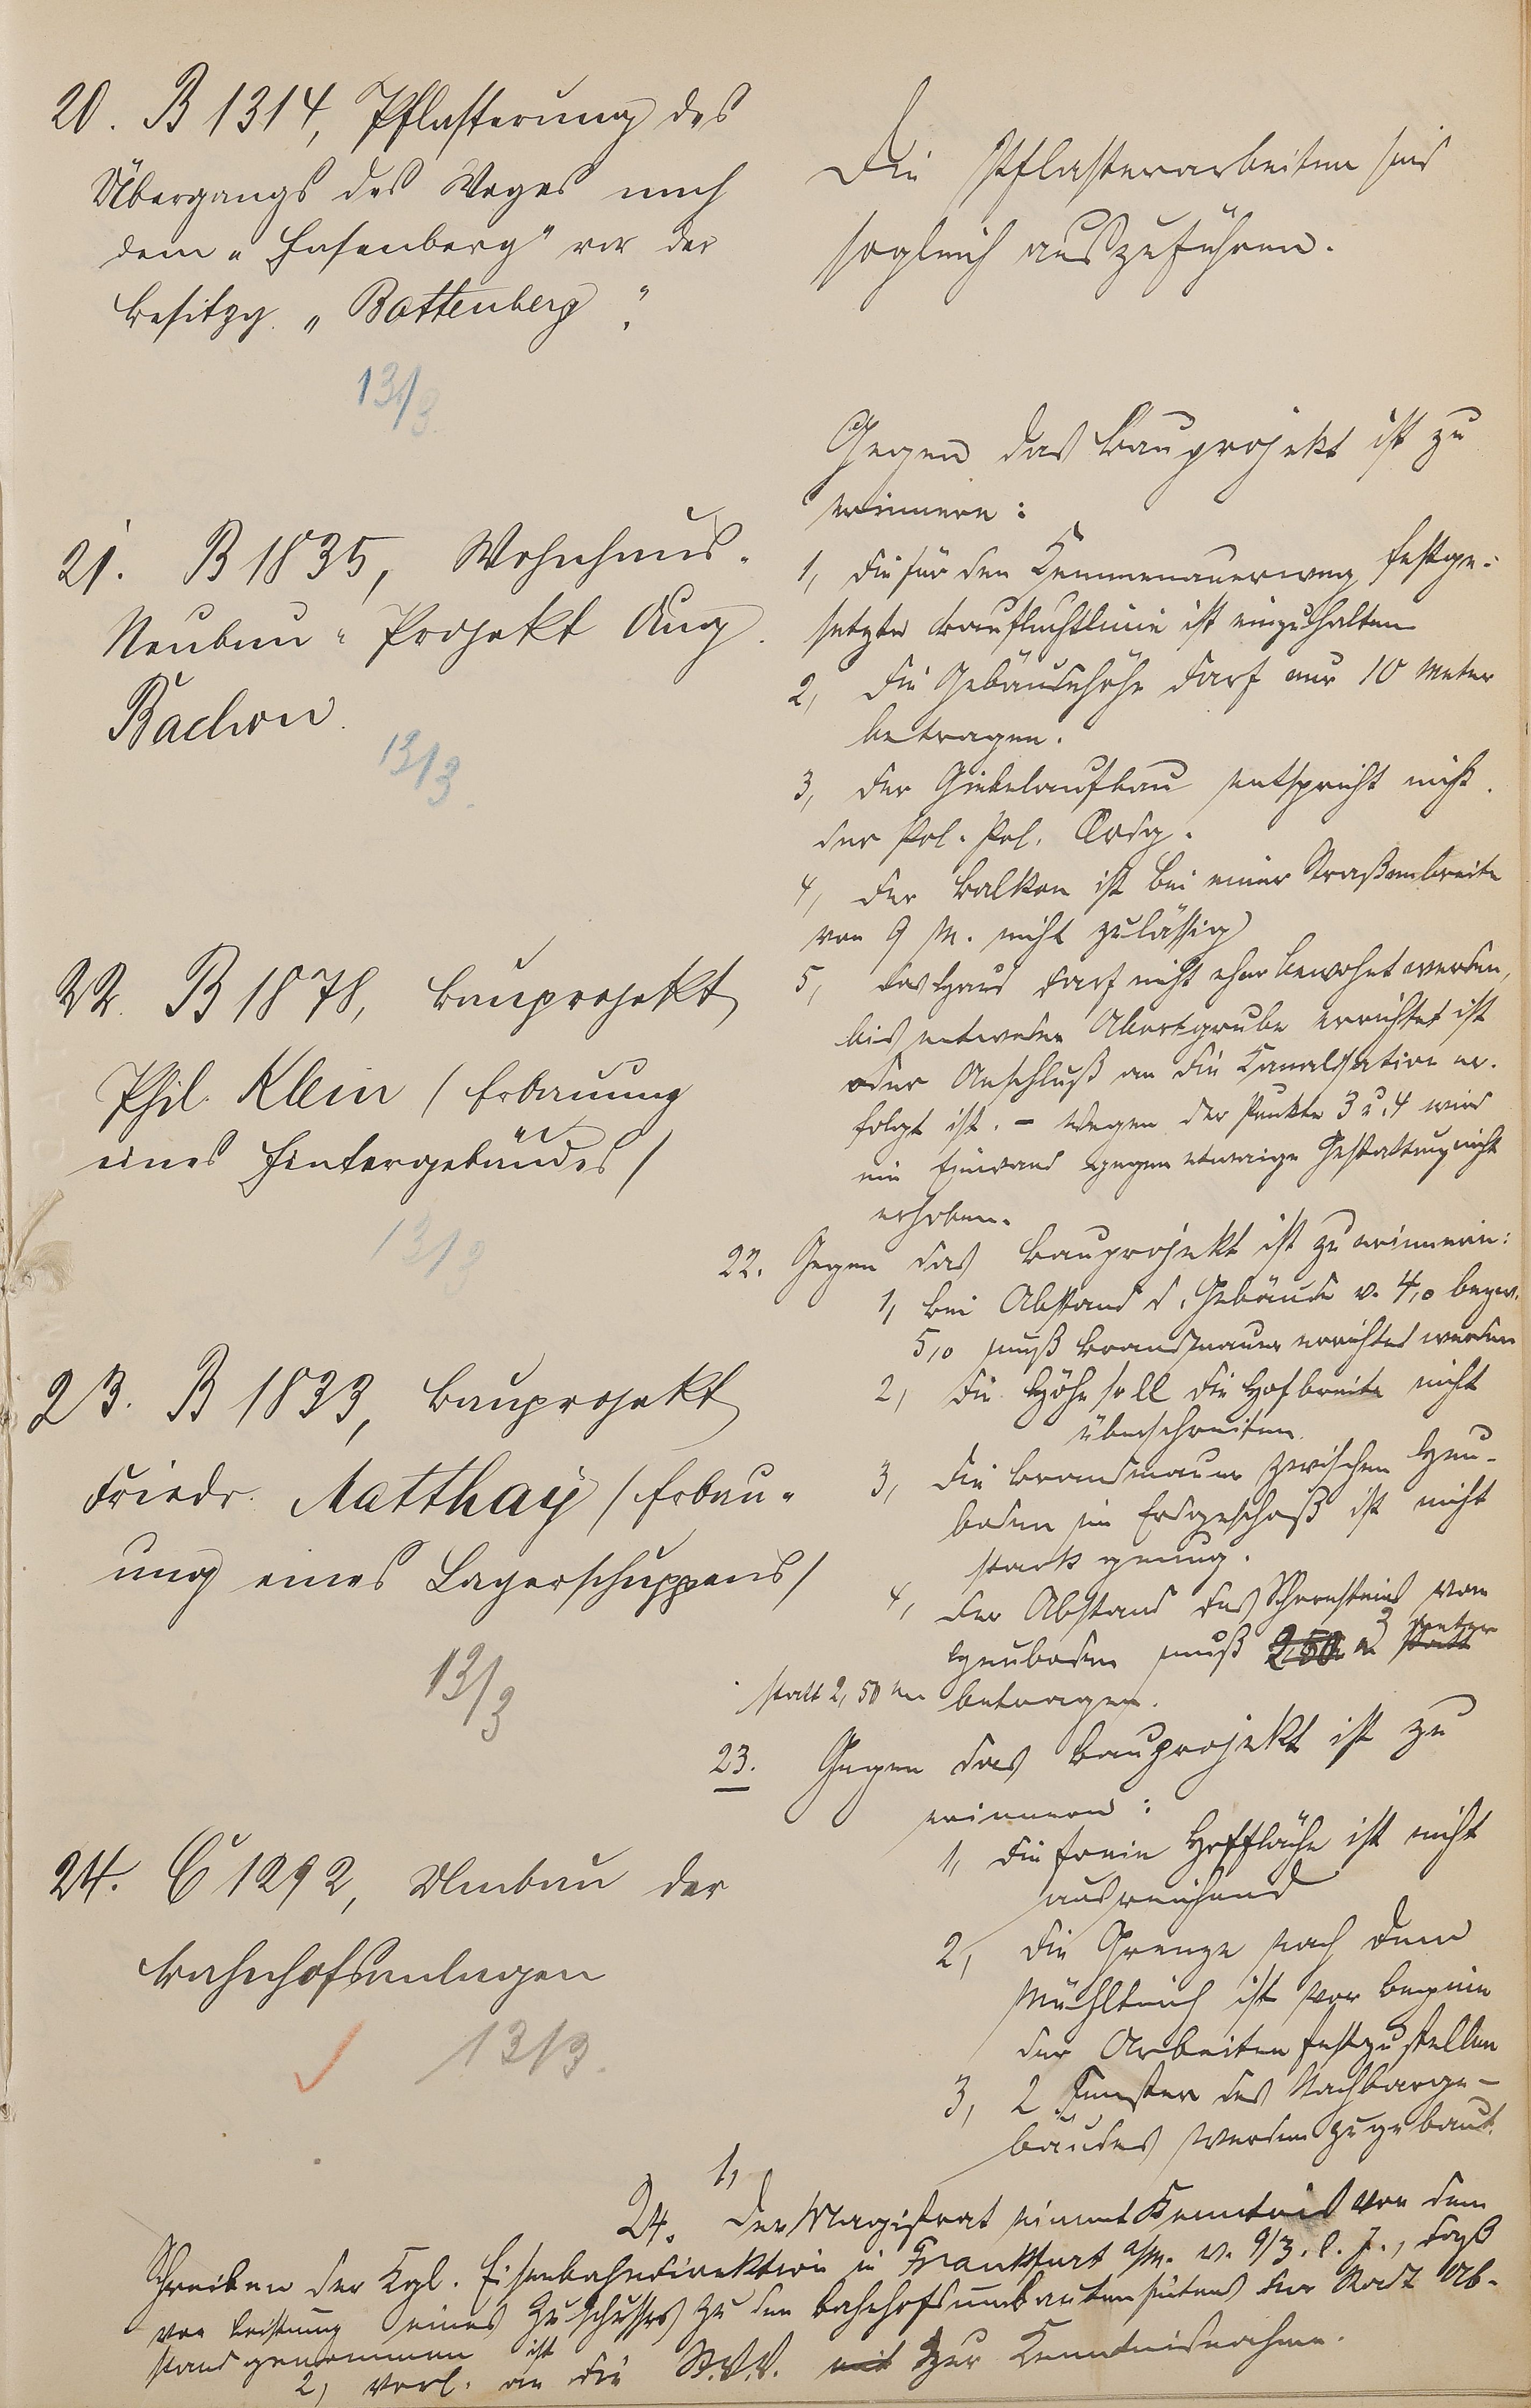 20. B 1314, Pflasterung des
Übergangs des Weges nach
dem "Hasenberg" vor der
Besitzg. "Battenberg".
13/3.
Die Pflasterarbeiten sind
sogleich auszuführen.
21. B 1835, Wohnhaus-
Neubau-Projekt Aug.
Bachon.
13/3.
Gegen das Bauprojekt ist zu
erinnern:
1, die für den Kemmenauerweg festge-
setzte Baufluchtlinie ist einzuhalten
2, die Gebäudehöhe darf nur 10 Meter
betragen.
3, der Giebelaufbau entspricht nicht
der Pol. Ordg.
4, der Balkon ist bei einer Straßenbreite
von 9 M. nicht zulässig
5, das Haus darf nicht eher bewohnt werden,
bis entweder Abortgrube errichtet ist
oder Anschluß an die Kanalisation er-
folgt ist. - Wegen der Punkte 3 u. 4 wird
ein Einwand gegen etwaige Gestattung nicht
erhoben.
22. B 1878, Bauprojekt
Phil. Klein /Erbauung
eines Hintergebäudes/
13/3
22. Gegen das Bauprojekt ist zu erinnern:
1, bei Abstand d. Gebäude v. 4,0 bezw.
5,0 muß Brandmauer errichtet werden
2, die Höhe soll die Hofbreite nicht
überschreiten.
3, die Brandmauer zwischen Heu-
boden im Erdgeschoß ist nicht
stark genug.
4, der Abstand des Schornsteins vom
Heuboden muß 2,50 m 3 Meter statt
statt 2,50 m betragen.
23. B 1833, Bauprojekt
Friedr. Matthay /Erbau-
ung eines Lagerschuppens/
13/3
23. Gegen das Bauprojekt ist zu
erinnern:
1, die freie Hoffläche ist nicht
ausreichend
2, die Grenze nach dem
Mühlteich ist vor Beginn
der Arbeiten festzustellen
3, 2 Fenster des Nachbarge-
bäudes werden zugebaut.
24. C 1292, Umbau der
Bahnhofsanlagen
13/3.
24. 1, Der Magistrat nimmt Kenntnis von dem
Schreiben der Kgl. Eisenbahndirektion in Frankfurt a/M. v. 9/3. l. J., daß
von Leistung eines Zuschusses zu den Bahnhofsumbauten seitens der Stadt Ab-
stand genommen ist
2, Vorl. an die St.V.V. mit zur Kenntnisnahme.